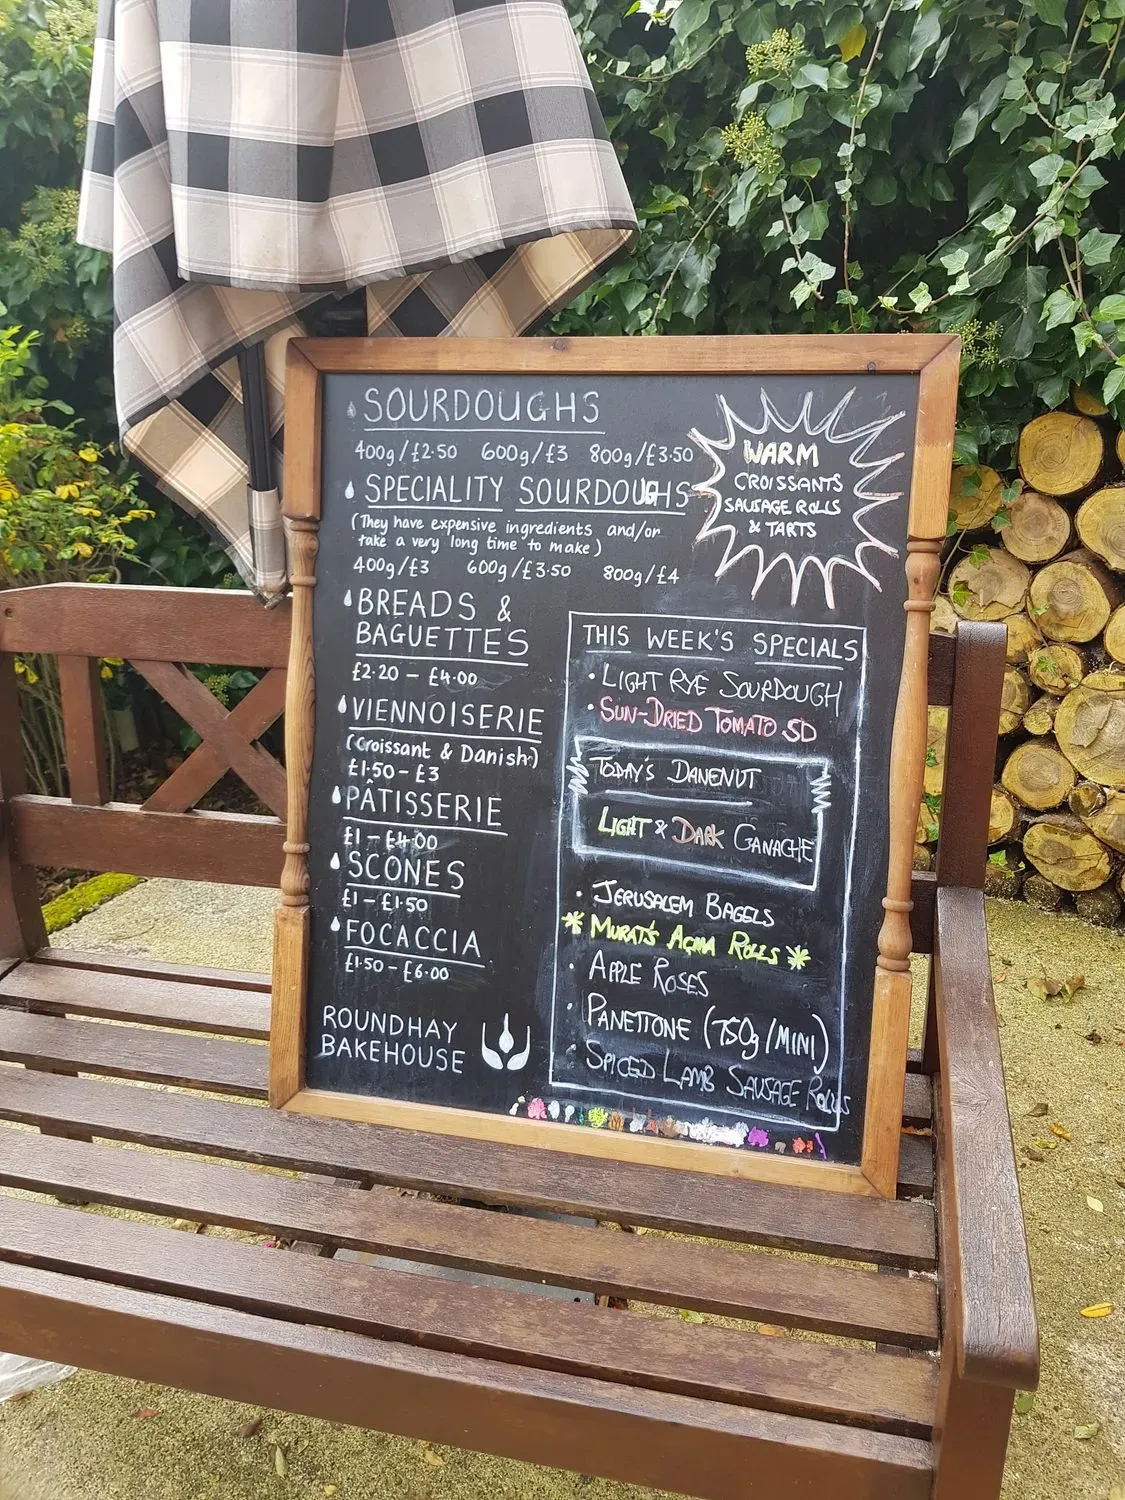 SOURDOUGHS
400g/£2.50 600g/£3 800g/£3.50
SPECIALITY SOURDOUGHS
(They have expensive ingredients and/or
take a very long time to make)
400g/£3 600g/£3.50 800g/£4
BREADS &
BAGUETTES
£2.20 – £4.00
VIENNOISERIE
(Croissant & Danish)
£1.50 – £3
PÂTISSERIE
£1 – £4.00
SCONES
£1 – £1.50
FOCACCIA
£1.50 – £6.00
ROUNDHAY
BAKEHOUSE
WARM
CROISSANTS
SAUSAGE ROLLS
& TARTS
THIS WEEK'S SPECIALS
• LIGHT RYE SOURDOUGH
• SUN-DRIED TOMATO SD
TODAY'S DANENUT
LIGHT & DARK GANACHE
• JERUSALEM BAGELS
* MURAT'S AÇMA ROLLS *
• APPLE ROSES
• PANETTONE (750g/MINI)
• SPICED LAMB SAUSAGE ROLLS